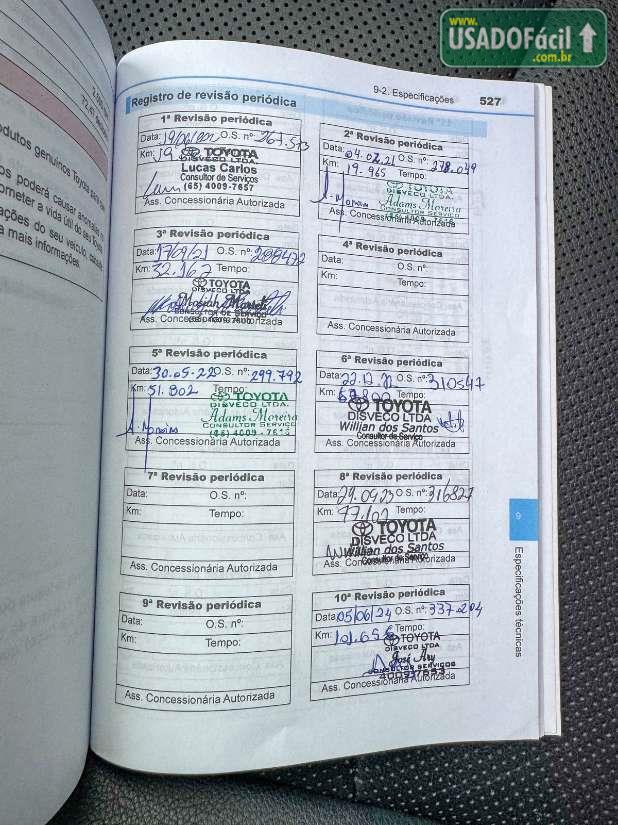 www.
USADOFácil
.com.br
9-2. Especificações 527
Registro de revisão periódica
1ª Revisão periódica
Data: O.S. nº:
Km: 19
TOYOTA
DISVECO LTDA.
Lucas Carlos
Consultor de Serviços
(65) 4009-7657
Ass. Concessionária Autorizada
2ª Revisão periódica
Data: O.S. nº: 278.049
Km: 19-965
TOYOTA
DISVECO LTDA.
Adams Moreira
CONSULTOR SERVIÇO
Ass. Concessionária Autorizada
3ª Revisão periódica
Data: 17/09/21 O.S. nº: 288472
Km: 32.167 Tempo:
TOYOTA
DISVECO LTDA.
CONSULTOR DE SERVIÇO
Ass. Concessionária Autorizada
4ª Revisão periódica
Data: O.S. nº:
Km: Tempo:
Ass. Concessionária Autorizada
5ª Revisão periódica
Data: 30-05-22 O.S. nº: 299.792
Km: 51.802 Tempo:
TOYOTA
DISVECO LTDA.
Adams Moreira
CONSULTOR SERVIÇO
Ass. Concessionária Autorizada
6ª Revisão periódica
Data: 22.12.22 O.S. nº: 310547
Km: Tempo:
TOYOTA
DISVECO LTDA
Willjan dos Santos
Consultor de Serviço
Ass. Concessionária Autorizada
7ª Revisão periódica
Data: O.S. nº:
Km: Tempo:
Ass. Concessionária Autorizada
8ª Revisão periódica
Data: O.S. nº: 316827
Km: 77.102 Tempo:
TOYOTA
DISVECO LTDA
Willjan dos Santos
Consultor de Serviço
Ass. Concessionária Autorizada
9ª Revisão periódica
Data: O.S. nº:
Km: Tempo:
Ass. Concessionária Autorizada
10ª Revisão periódica
Data: 05/06/24 O.S. nº: 337.204
Km: Tempo:
TOYOTA
DISVECO LTDA
José Ary
CONSULTOR SERVIÇOS
Ass. Concessionária Autorizada
9
Especificações técnicas